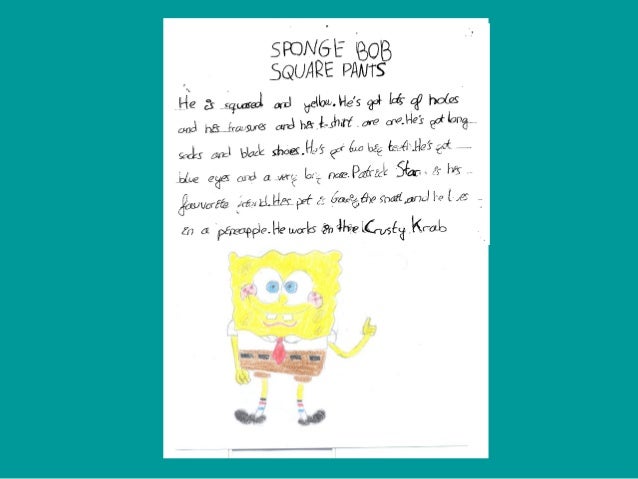 SPONGE BOB
SQUARE PANTS
He is squared and yellow. He's got lots of holes
and his trausures and his t-shirt are one. He's got long
socks and black shoes. He's got two big teeth. He's got
blue eyes and a very long nose. Patrick Star is his
favvorite friend. Her pet is Gary, the snail, and he lives
in a pineapple. He works in the Crusty Krab